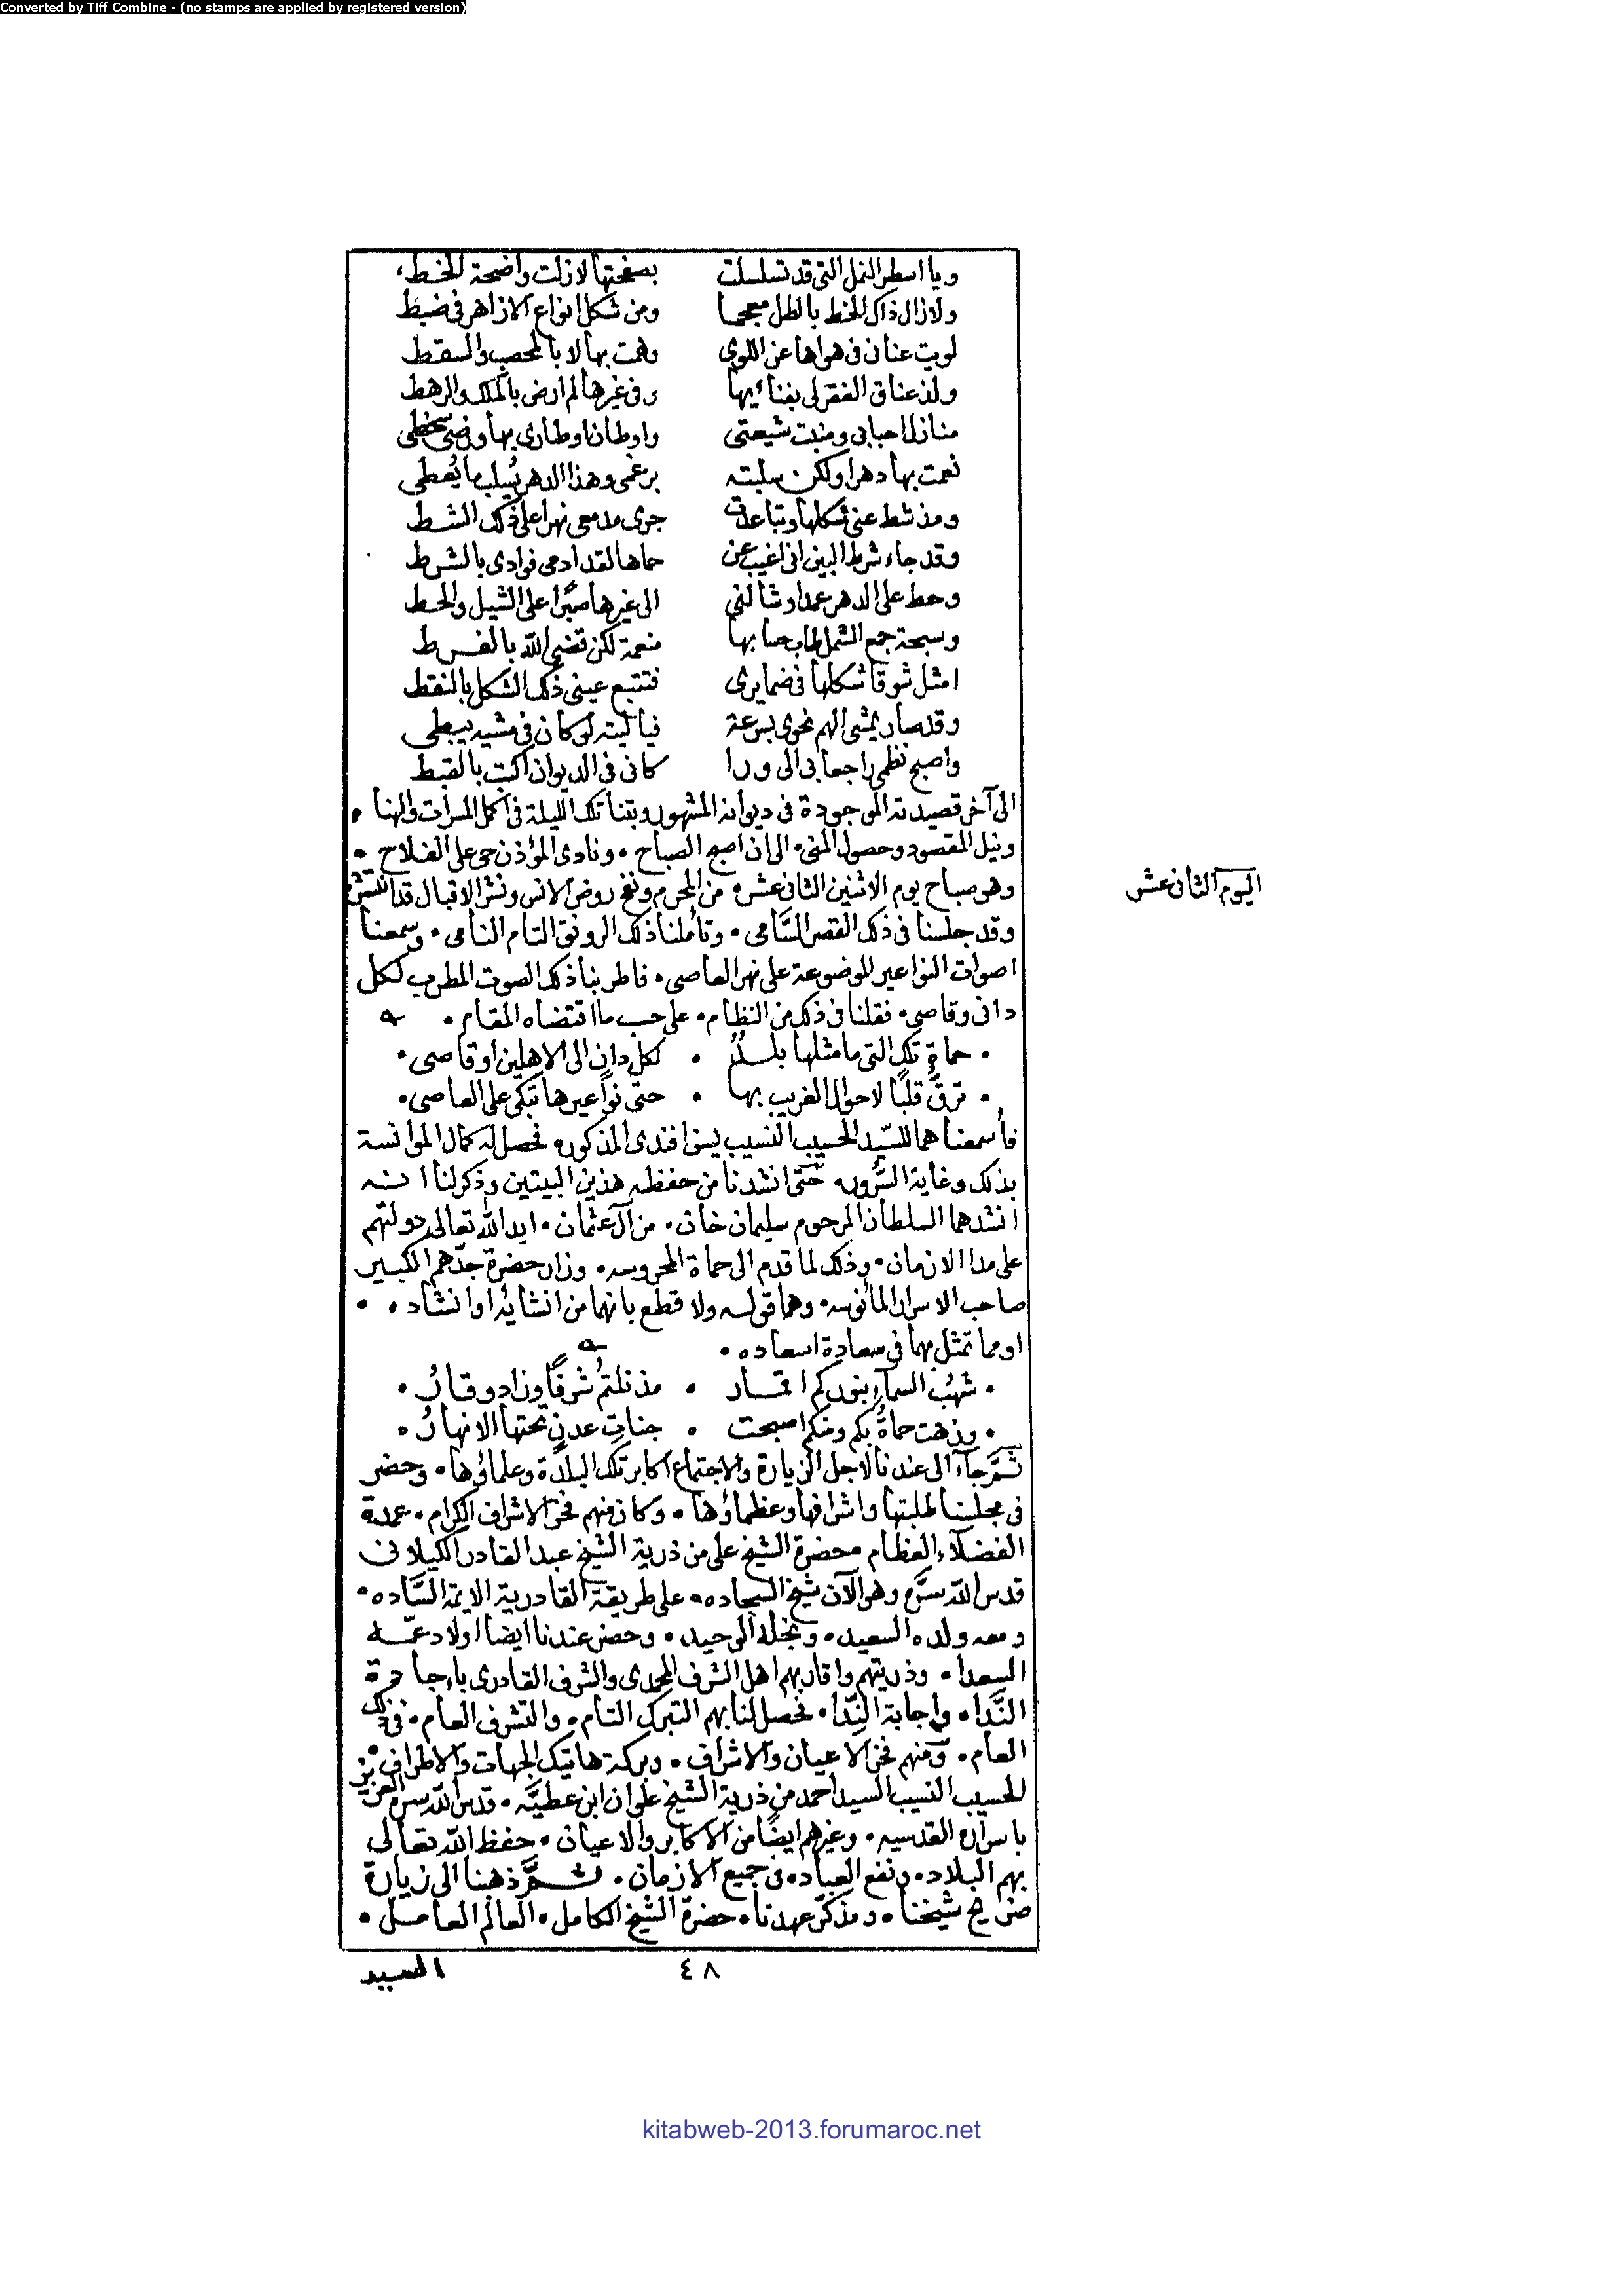 Converted by Tiff Combine - (no stamps are applied by registered version)
ويا اسطر النمل التى قد تسلسلت بصفحتها لازلت واضحة الخط
ولازال ذاك الخط بالطل معجما ومن شكل انواع الازاهر فى ضبط
لويت عنانى فى هواها عن اللوى وهمت بها لا بالمحصب والسقط
ولذ عناق الفقر لى بفنائيها وفى غيرها لم ارض بالملك والرهط
منازل احبابى ومنبت شيعتى واوطان اوطارى بها ورضى سخطى
نعمت بها دهرا ولكن سلبته برغمى وهذا الدهر يسلب ما يُعطى
ومذ شط عنى شكلها وتباعدت جرى مدمعى نهرا على ذلك الشط
وقد جاء شرط البين انى اغيب عن حماها لقد ادمى فوادى بالشرط
وحط على الدهر عمدا وشالنى الى غيرها صبرًا على الشيل والحط
وسبحة جمع الشمل طاب حسابها منعمة لكن قضى الله بالفرط
امثل شوقا شكلها فى ضمايرى فتتبع عينى ذلك الشكل بالنقط
وقد صار يمشى الهم نحوى بسرعة فيا ليته لو كان فى مشيه يبطى
واصبح نظمى راجعا بى الى ورا كانى فى الديوان اكتب بالقبط
الى آخر قصيدته الموجودة فى ديوانه المشهور وبتنا تلك الليلة فى اكمل المسرات والهنا •
ونيل المقصود وحصول المنى • الى ان اصبح الصباح • ونادى المؤذن حى على الفلاح •
وهو صباح يوم الاثنين الثانى عشر من المحرم روض الانس ونشر الاقبال قد انتشر
اليوم الثانى عشر
وقد جلسنا فى ذلك القصر السَّامى • وتأملنا ذلك الرونق التام النامى • وسمعنا
اصوات النواعير الموضوعة على نهر العاصى • فاطربنا ذلك الصوت المطرب لكل
دانى وقاصى • فقلنا فى ذلك من النظام • على حسب ما اقتضاه المقام •
• حماة تلك التى ما مثلها بلدٌ • لكل دان الى الاهلين او قاصى •
• ترقّ قلبًا لاحوال الغريب بها • حتى نواعيرها تبكى على العاصى •
فأسمعناهما للسيّد الحسيب النسيب يسن افندى المذكور • فحصل له كمال الموانسة
بذلك وغاية السُّرور • حتّى انشدنا من حفظه هذين البيتين وذكر لنا انه
انشدهما السلطان المرحوم سليمان خان • من آل عثمان • ايد الله تعالى دولتهم
على مدا الازمان • وذلك لما قدم الى حماة المحروسه • وزار حضرة جدّهم الكبير
صاحب الاسرار المأنوسه • وهما قوله ولا قطع بانهما من انشائه او انشاده •
او مما تمثل بهما فى سعادة اسعاده •
• شهُب السمآء بنوركم اقمار • مذ نلتمُ شرفًا وزاد وقارُ •
• وزهت حماةُ بكم ومنكم اصبحت • جنات عدنٍ تحتها الانهارُ •
ثمَّ جآء الى عندنا لاجل الزيارة والاجتماع اكابر تلك البلدة وعلماؤها • وحضر
فى مجلسنا طلبتها واشرافها وعظماؤها • وكان منهم فخر الاشراف الكرام • عمدة
الفضلآء العظام • حضرة الشيخ على من ذرية الشيخ عبد القادر الكيلانى
قدس الله سرَّه وهو الآن شيخ السجاده • على طريقة القادرية الايمة السَّاده •
ومعه ولده السعيد • ونجله الوحيد • وحضر عندنا ايضا اولاد عمّه
السعدا • وذريتهم واقاربهم اهل الشرف المحمدى والشرف القادرى
النَّدا • واجابة النِّدا • فحصل لنا بهم التبرك التام • والتشرف العام • فى ذلك
العام • ومنهم فخر الاعيان والاشراف • وبركة هاتيك الجهات والاطراف •
الحسيب النسيب السيد احمد من ذرية الشيخ علوان ابن عطيَّه • قدس الله سره العزيز
باسراره القدسيه • وغيرهم ايضًا من الاكابر والاعيان • حفظ الله تعالى
بهم البلاد • ونفع العباد • فى جميع الازمان • ثـمَّ ذهبنا الى زيارة
ضريح شيخنا • ومذكّر عهدنا • حضرة الشيخ الكامل • العالم العامل •
٤٨
السيد
kitabweb-2013.forumaroc.net